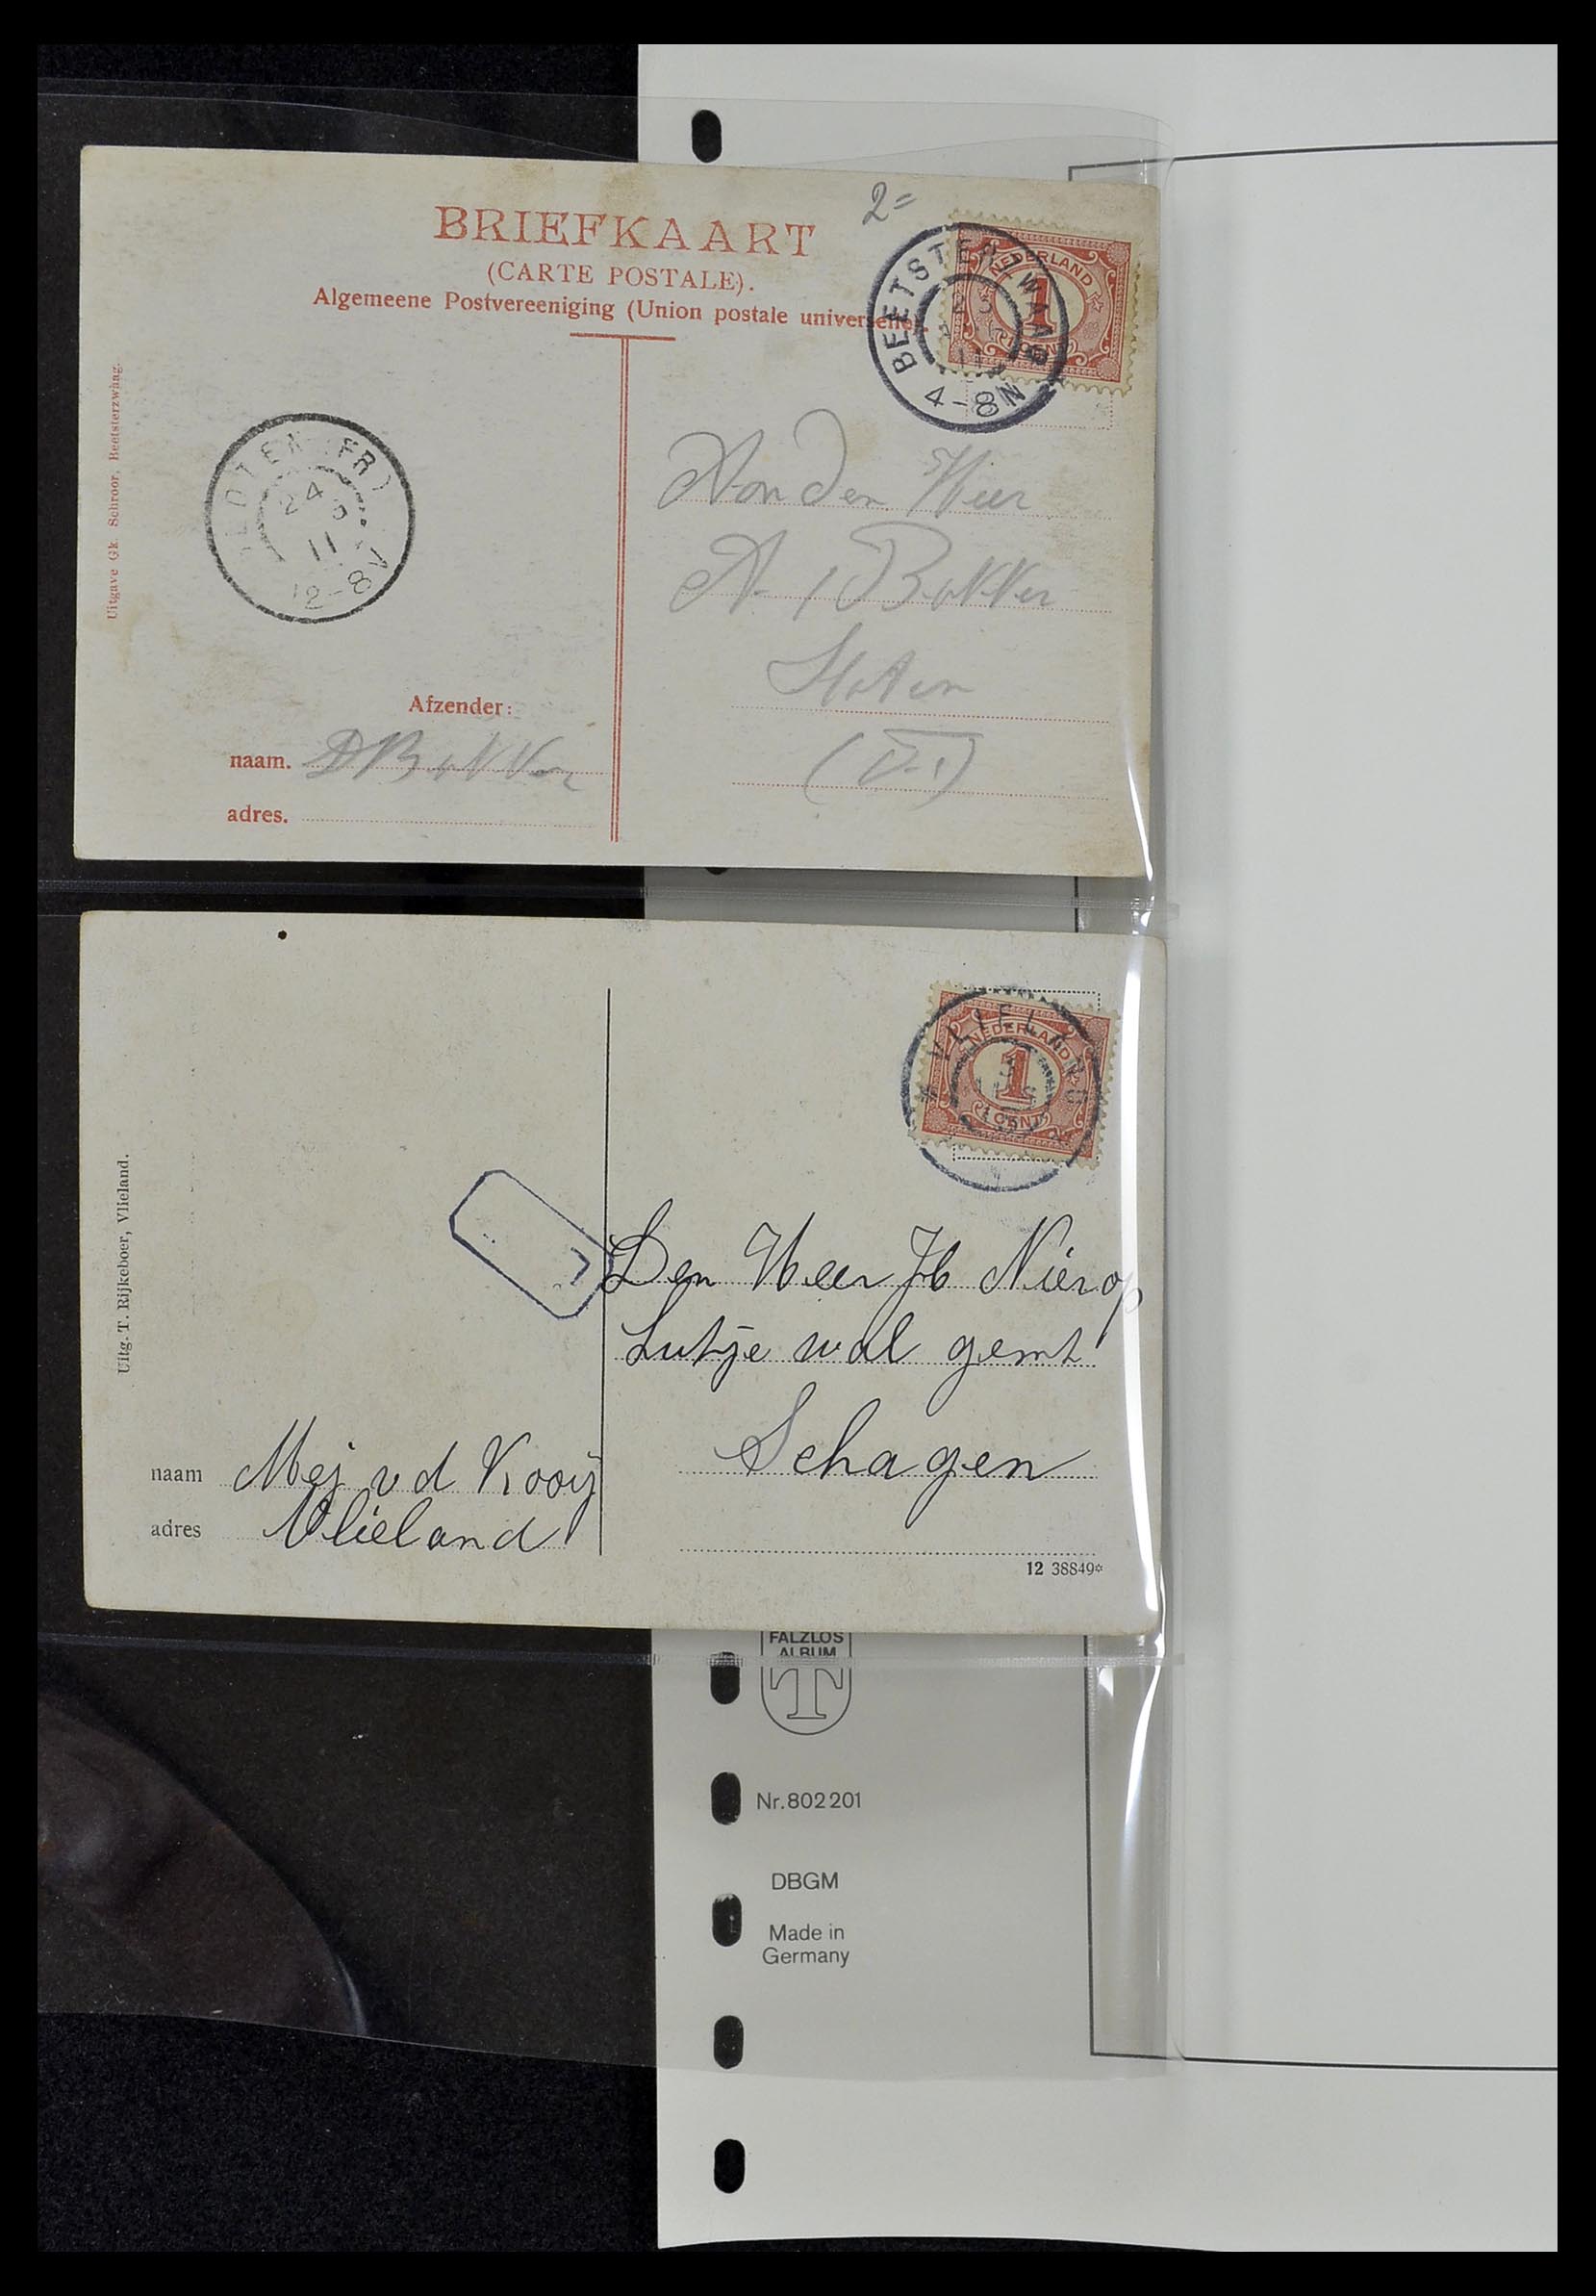 2=
BRIEFKAART
(CARTE POSTALE).
Algemeene Postvereeniging (Union postale universelle).
BEETSTERZWAAG
4-8N
NEDERLAND
1
CENT
Uitgave Gk. Schroor, Beetsterzwaag.
SLOTEN (FR)
24
11
12-8V
Aan den Heer
A. Bakker
Sloten
Afzender:
naam. D Bakker
adres.
VLIELAND
NEDERLAND
1
CENT
Uitg. T. Rijkeboer, Vlieland.
Den Heer Jb Nierop
Lutje wal gemt
Schagen
naam Mej v d Kooij
adres Vlieland
12 38849*
FALZLOS
ALBUM
T
Nr. 802 201
DBGM
Made in
Germany